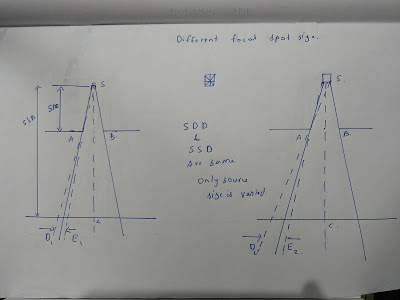 Different focal spot size.
S
S
SSD
SDD
A
B
A
B
SDD
&
SSD
Are same
Only source
size is varied.
C
C
D1
E1
D2
E2